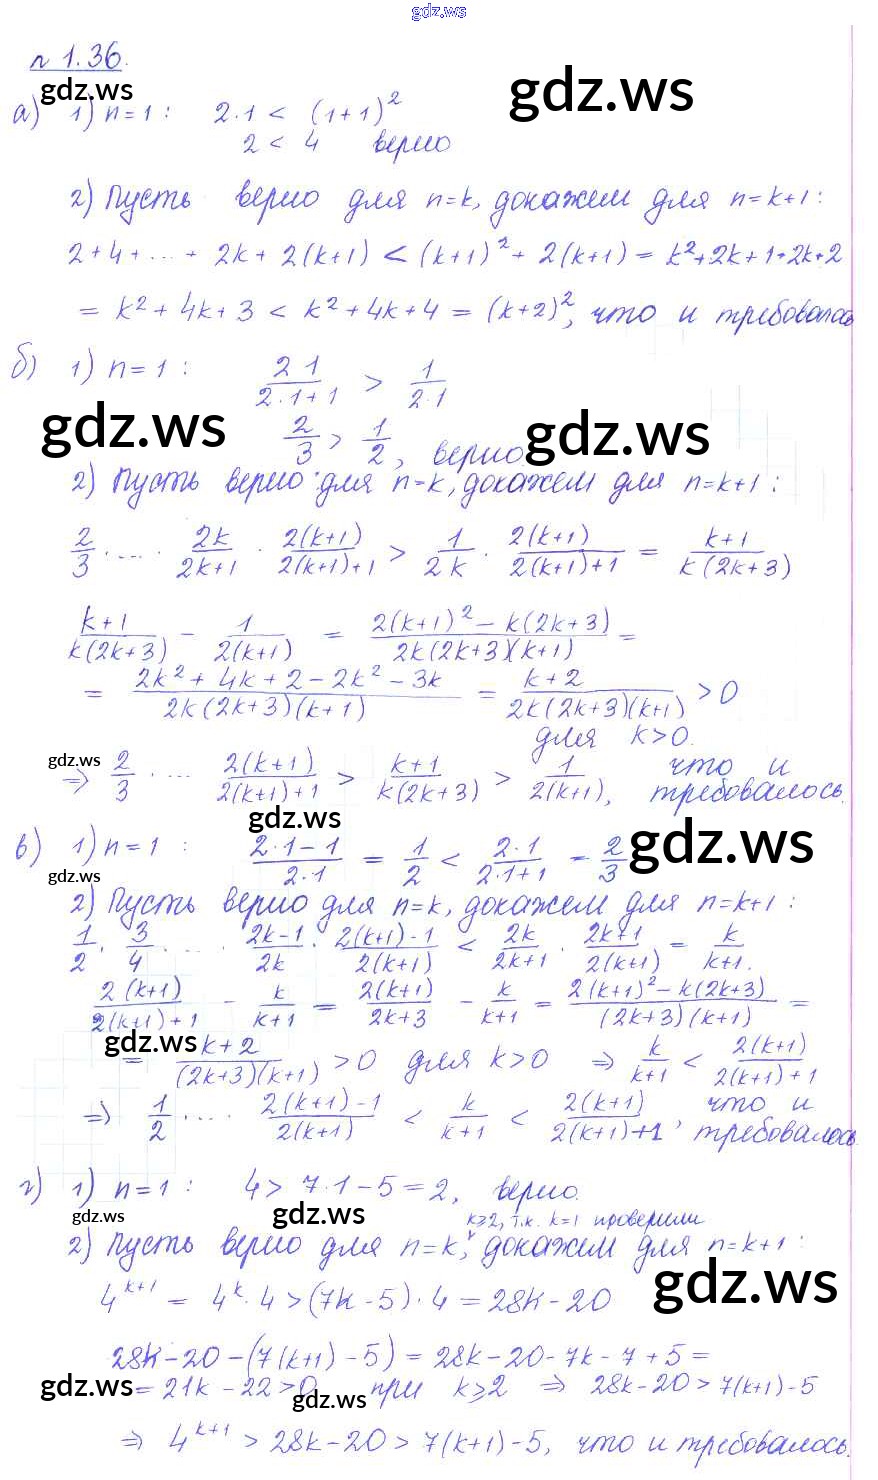 gdz.ws
n 1.36.
gdz.ws gdz.ws
а) 1) n=1 : 2·1 < (1+1)²
2 < 4 верно
2) Пусть верно для n=k, докажем для n=k+1 :
2+4+...+2k+2(k+1) < (k+1)²+2(k+1) = k²+2k+1+2k+2
= k²+4k+3 < k²+4k+4 = (k+2)², что и требовалось
б) 1) n=1 : 2 1/(2·1+1) > 1/(2·1)
gdz.ws gdz.ws
2/3 > 1/2, верно.
2) Пусть верно для n=k, докажем для n=k+1 :
2/3 · ... · 2k/(2k+1) · 2(k+1)/(2(k+1)+1) > 1/(2k) · 2(k+1)/(2(k+1)+1) = (k+1)/(k(2k+3))
(k+1)/(k(2k+3)) - 1/(2(k+1)) = (2(k+1)²-k(2k+3))/(2k(2k+3)(k+1)) =
= (2k²+4k+2-2k²-3k)/(2k(2k+3)(k+1)) = (k+2)/(2k(2k+3)(k+1)) > 0
для k>0.
gdz.ws
⇒ 2/3 · ... 2(k+1)/(2(k+1)+1) > (k+1)/(k(2k+3)) > 1/(2(k+1)), что и требовалось.
gdz.ws gdz.ws
в) 1) n=1 : (2·1-1)/(2·1) = 1/2 < (2·1)/(2·1+1) = 2/3
gdz.ws
2) Пусть верно для n=k, докажем для n=k+1 :
1/2 · 3/4 · ... · (2k-1)/2k · (2(k+1)-1)/(2(k+1)) < 2k/(2k+1) · (2k+1)/(2(k+1)) = k/(k+1).
2(k+1)/(2(k+1)+1) - k/(k+1) = 2(k+1)/(2k+3) - k/(k+1) = (2(k+1)²-k(2k+3))/((2k+3)(k+1)) =
gdz.ws
= (k+2)/((2k+3)(k+1)) > 0 для k>0 ⇒ k/(k+1) < 2(k+1)/(2(k+1)+1)
⇒ 1/2 · ... (2(k+1)-1)/(2(k+1)) < k/(k+1) < 2(k+1)/(2(k+1)+1), что и требовалось.
г) 1) n=1 : 4 > 7·1-5=2, верно.
gdz.ws gdz.ws
k⩾2, т.к. k=1 проверили
2) Пусть верно для n=k, докажем для n=k+1 :
gdz.ws
4^(k+1) = 4^k·4 > (7k-5)·4 = 28k-20
28k-20-(7(k+1)-5) = 28k-20-7k-7+5 =
gdz.ws gdz.ws
= 21k-22>0 при k⩾2 ⇒ 28k-20 > 7(k+1)-5
⇒ 4^(k+1) > 28k-20 > 7(k+1)-5, что и требовалось.